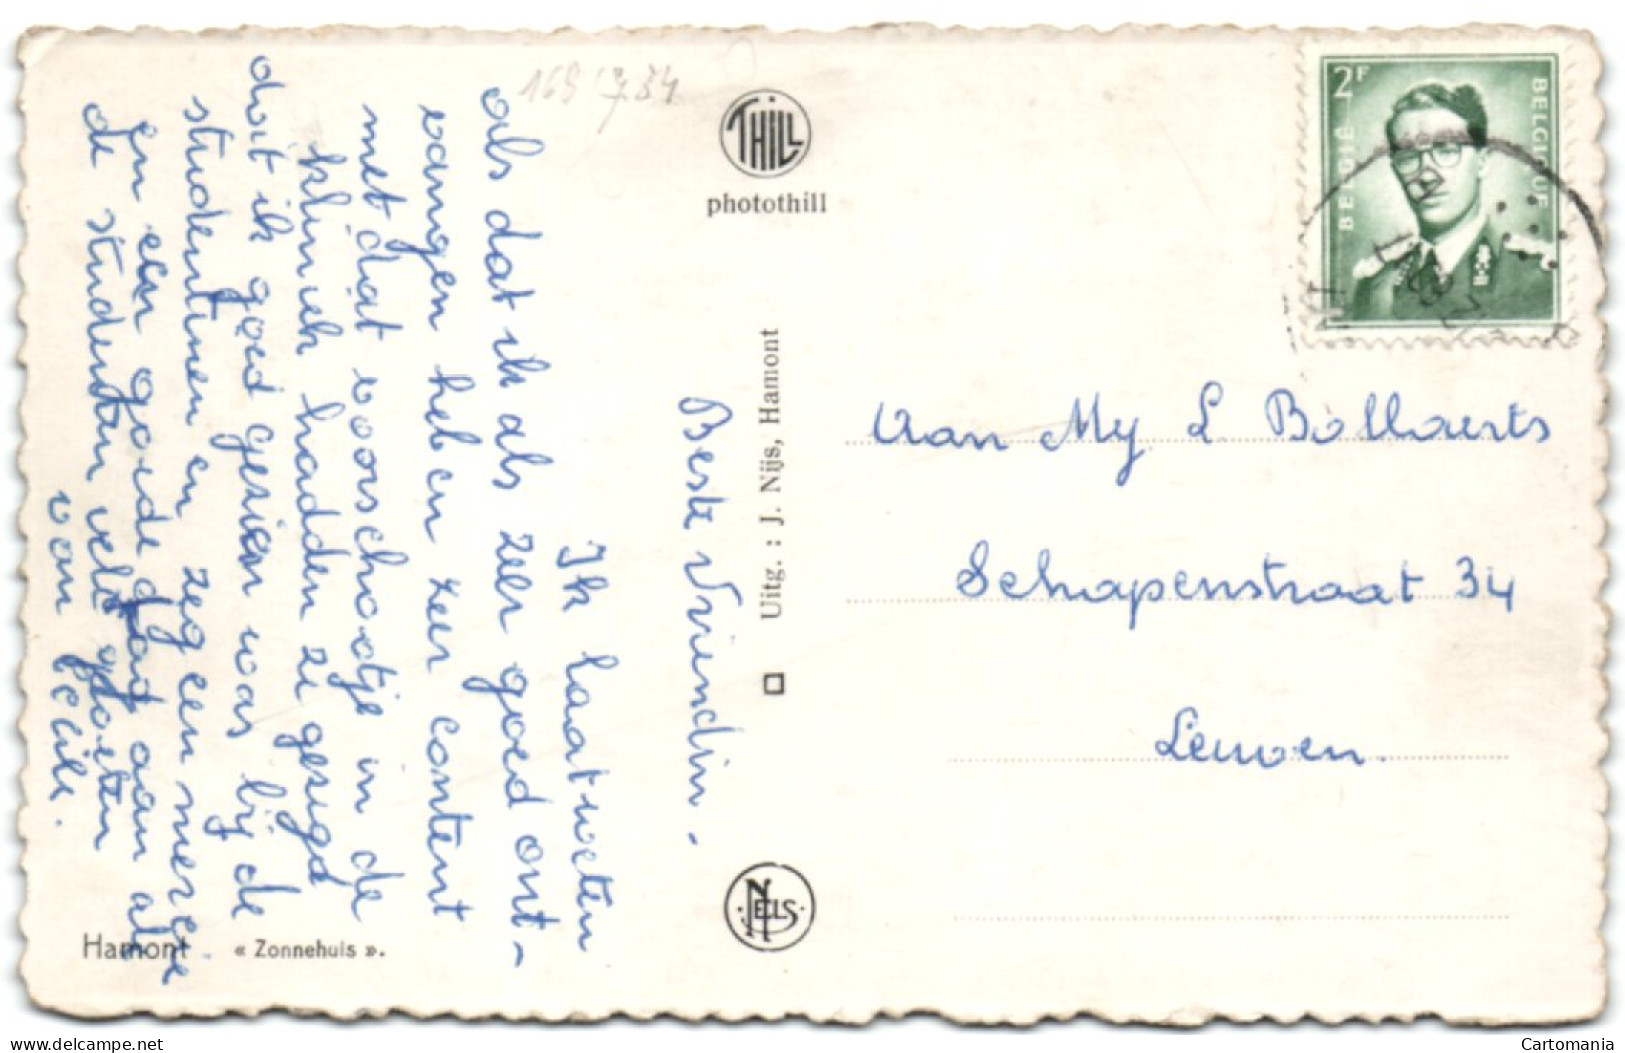 169 7 34
Beste Vriendin.
Ik laat weten
als dat ik als zeer goed ont-
vangen heb en zeer content
met dat voorschootje in de
kliniek hadden ze gezegd
dat ik goed gezien was bij de
studentinnen en zeg een merci
en een goede dag aan al
de studenten vele groeten
van Cecile.
THILL
photothill
Uitg. : J. Nijs, Hamont
NELS
Hamont « Zonnehuis ».
2F
BELGIË
BELGIQUE
Aan Mej L Bollaerts
Schapenstraat 34
Leuven.
www.delcampe.net
Cartomania